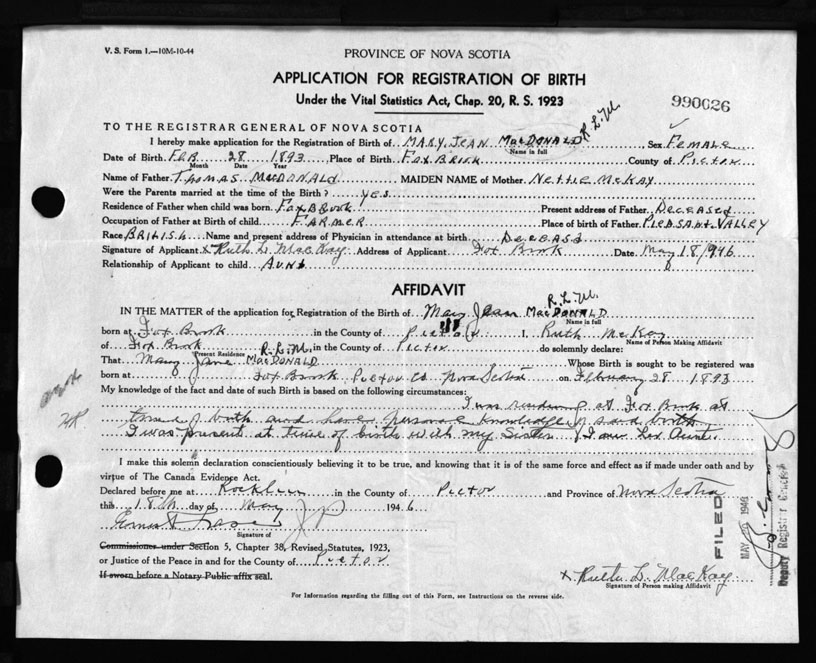 V. S. Form 1.—10M-10-44
PROVINCE OF NOVA SCOTIA
APPLICATION FOR REGISTRATION OF BIRTH
Under the Vital Statistics Act, Chap. 20, R. S. 1923
990026
TO THE REGISTRAR GENERAL OF NOVA SCOTIA
R.L.M.
I hereby make application for the Registration of Birth of MARY JEAN MacDONALD Sex FEMALE
Name in full
Date of Birth FEB 28 1893 Place of Birth FOX BROOK County of PICTOU
Month Date Year
Name of Father THOMAS MacDONALD MAIDEN NAME of Mother NETTIE McKAY
Were the Parents married at the time of the Birth? YES
Residence of Father when child was born FOX BROOK Present address of Father DECEASED
Occupation of Father at Birth of child FARMER Place of birth of Father PLEASANT VALLEY
Race BRITISH Name and present address of Physician in attendance at birth DECEASD
Signature of Applicant x Ruth L. MacKay Address of Applicant Fox Brook Date May 18/946
Relationship of Applicant to child AUNT
AFFIDAVIT
R.L.M.
IN THE MATTER of the application for Registration of the Birth of Mary Jean MacDONALD
Name in full
born at Fox Brook in the County of Pictou I, Ruth McKay
Name of Person Making Affidavit
of Fox Brook in the County of Pictou do solemnly declare:
Present Residence R.L.M.
That Mary Jane MacDONALD Whose Birth is sought to be registered was
born at Fox Brook Pictou Co Nova Scotia on February 28 1893
My knowledge of the fact and date of such Birth is based on the following circumstances:
I was residing at Fox Brook at
time of birth and have personal knowledge of said birth
I was present at time of birth with my Sister I am her Aunt.
I make this solemn declaration conscientiously believing it to be true, and knowing that it is of the same force and effect as if made under oath and by
virtue of The Canada Evidence Act.
Declared before me at Rocklin in the County of Pictou and Province of Nova Scotia
this 18th day of May 1946
Ernest J P
Signature of
Commissioner under Section 5, Chapter 38, Revised Statutes, 1923,
or Justice of the Peace in and for the County of Pictou
If sworn before a Notary Public affix seal.
x Ruth L. MacKay
Signature of Person making Affidavit
For Information regarding the filling out of this Form, see Instructions on the reverse side.
FILED
MAY 20 1946
Deputy Registrar General